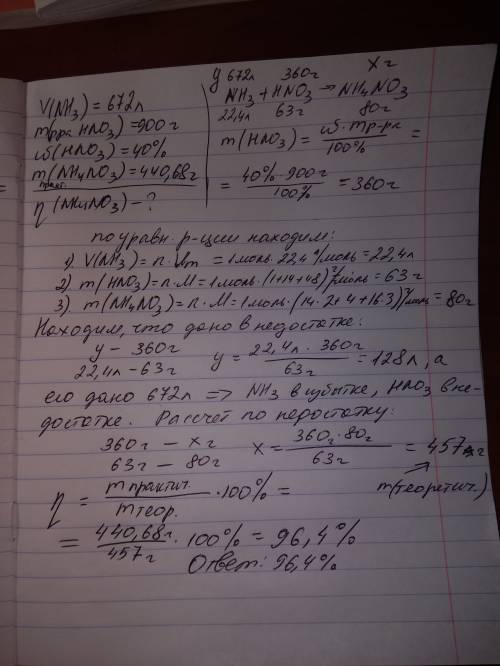 V(NH3) = 672л
mр-ра(HNO3) = 900г
ω(HNO3) = 40%
mпракт.(NH4NO3) = 440,68г
η(NH4NO3) - ?
y 672л 360г xг
NH3 + HNO3 → NH4NO3
22,4л 63г 80г
m(HNO3) = ω · mр-ра / 100% =
= 40% · 900г / 100% = 360г
по уравн. р-ции находим:
1) V(NH3) = n · Vm = 1моль · 22,4 л/моль = 22,4л
2) m(HNO3) = n · M = 1моль · (1+14+48) г/моль = 63г
3) m(NH4NO3) = n · M = 1моль · (14·2+4+16·3) г/моль = 80г
Находим, что дано в недостатке:
y – 360г
22,4л – 63г
y = 22,4л · 360г / 63г = 128л, а
его дано 672л => NH3 в избытке, HNO3 в не-
достатке. Рассчет по недостатку:
360г – xг
63г – 80г
x = 360г · 80г / 63г = 457г
m(теоретич.)
η = mпрактич. / mтеор. · 100% =
= 440,68г / 457г · 100% = 96,4%
Ответ: 96,4%